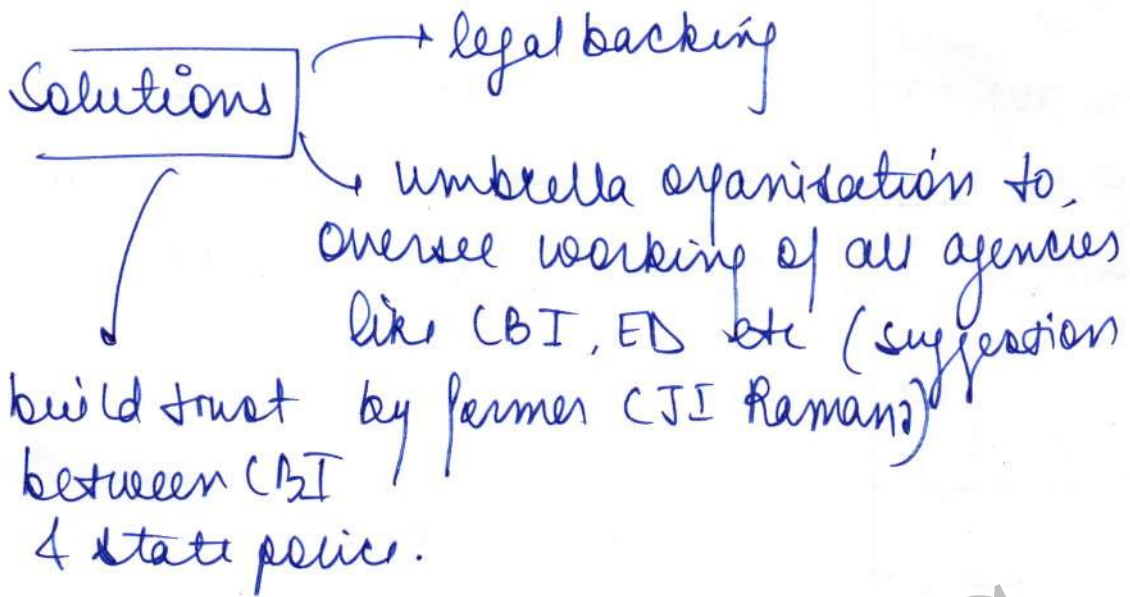 Solutions
legal backing
umbrella organisation to
oversee working of all agencies
like CBI, ED etc (suggestion
by former CJI Ramana)
build trust
between CBI
& state police.